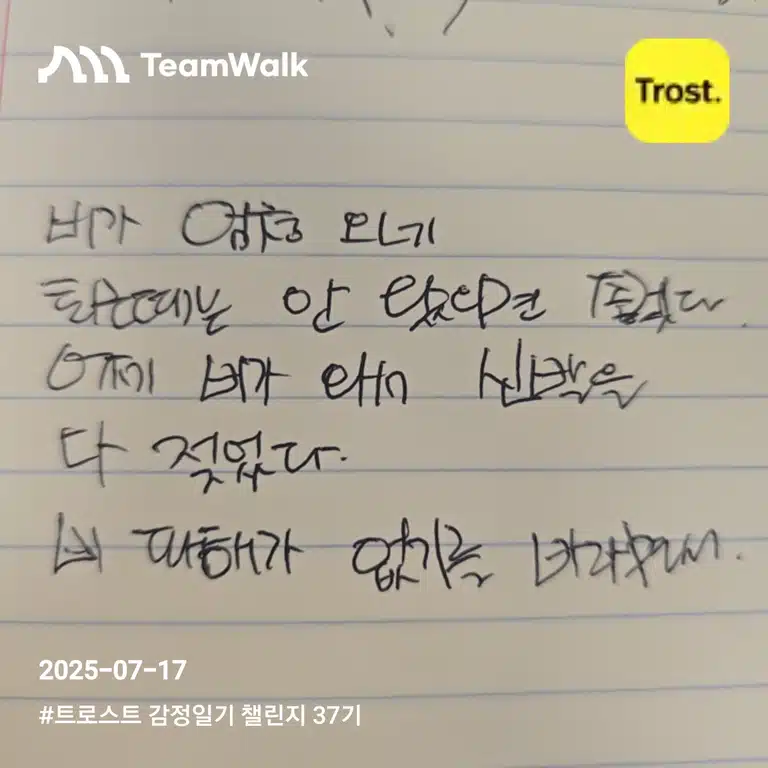 TeamWalk
Trost.
비가 엄청 오네
퇴근때는 안 왔으면 좋겠다.
어제 비가 와서 신발을
다 젖었다.
비 피해가 없기를 바라면서.
2025-07-17
#트로스트 감정일기 챌린지 37기